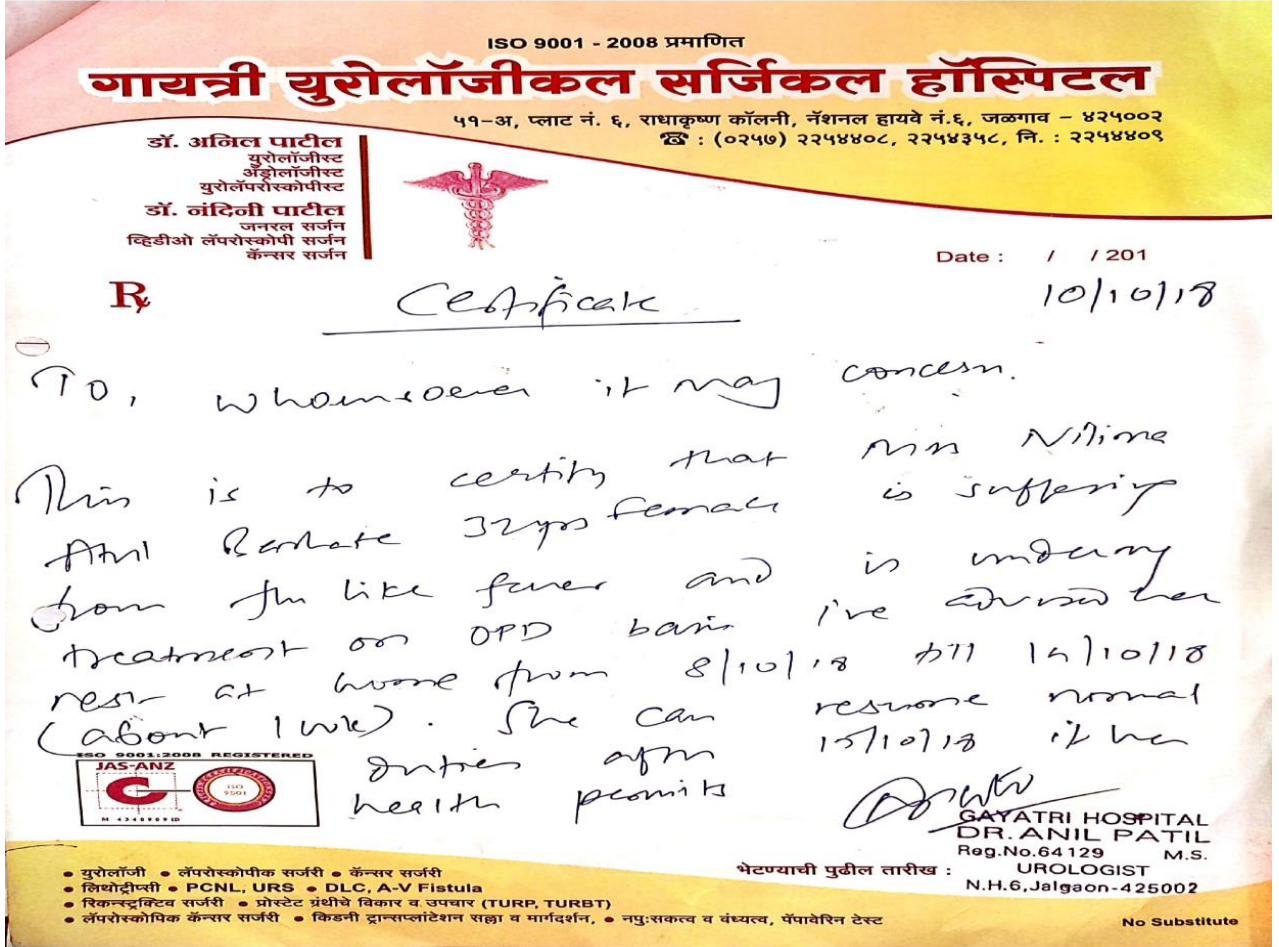 ISO 9001 - 2008 प्रमाणित
गायत्री युरोलॉजीकल सर्जिकल हॉस्पिटल
५१-अ, प्लाट नं. ६, राधाकृष्ण कॉलनी, नॅशनल हायवे नं.६, जळगाव – ४२५००२
☎ : (०२५७) २२५४४०८, २२५४३५८, नि. : २२५४४०९
डॉ. अनिल पाटील
युरोलॉजीस्ट
अँड्रोलॉजीस्ट
युरोलॅपरोस्कोपीस्ट
डॉ. नंदिनी पाटील
जनरल सर्जन
व्हिडीओ लॅपरोस्कोपी सर्जन
कॅन्सर सर्जन
Date : / / 201
10/10/18
Rx
Certificate
To, whomsoever it may concern.
This is to certify that Nilima
Atul 32yrs Female is suffering
from flu like fever and is undergoing
treatment on OPD basis i've advised her
rest at home from 8/10/18 till 14/10/18
(about 1 wk). She can resume normal
duties after 15/10/18 if her
health permits
ISO 9001:2008 REGISTERED
JAS-ANZ
ISO 9001
GAYATRI HOSPITAL
DR. ANIL PATIL
Reg.No.64129 M.S.
UROLOGIST
N.H.6,Jalgaon-425002
भेटण्याची पुढील तारीख :
• युरोलॉजी • लॅपरोस्कोपीक सर्जरी • कॅन्सर सर्जरी
• लिथोट्रीप्सी • PCNL, URS • DLC, A-V Fistula
• रिकन्स्ट्रक्टिव सर्जरी • प्रोस्टेट ग्रंथीचे विकार व उपचार (TURP, TURBT)
• लॅपरोस्कोपिक कॅन्सर सर्जरी • किडनी ट्रान्सप्लांटेशन सल्ला व मार्गदर्शन, • नपुःसकत्व व वंध्यत्व, पॅपावेरिन टेस्ट
No Substitute